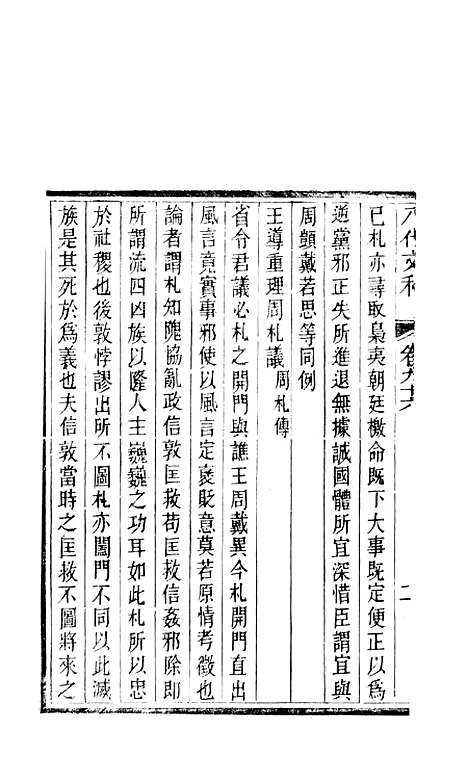 八代文粹 卷九十六 二
已札亦尋取梟夷朝廷檄命既下大事既定便正以爲
逆黨邪正失所進退無據誠國體所宜深惜臣謂宜與
周顗戴若思等同例
王導重理周札議周札傳
省令君議必札之開門與譙王周戴異今札開門直出
風言竟實事邪便以風言定襃貶意莫若原情考徵也
論者謂札知隗協亂政信敦匡救苟匡救信姦邪除即
所謂流四凶族以隆人主巍巍之功耳如此札所以忠
於社稷也後敦悖謬出所不圖札亦闔門不同以此滅
族是其死於爲義也夫信敦當時之匡救不圖將來之